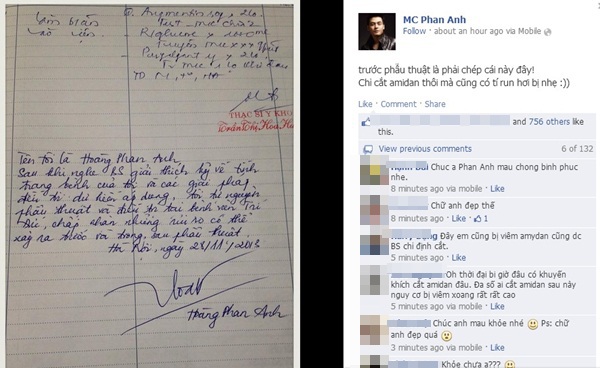 Tên tôi là Hoàng Phan Anh.
Sau khi nghe BS giải thích kỹ về tình
trạng bệnh của tôi và các giải pháp
điều trị dự kiến áp dụng. Tôi tự nguyện
phẫu thuật và điều trị tại bệnh viện Trí
Đức, chấp nhận những rủi ro có thể
xảy ra trước và trong, sau phẫu thuật.
Hà Nội, ngày 23/11/2013
Hoàng Phan Anh
THẠC SĨ Y KHOA
MC Phan Anh
Follow · about an hour ago via Mobile
trước phẫu thuật là phải chép cái này đây!
Chỉ cắt amidan thôi mà cũng có tí run hơi bị nhẹ :))
Like · Comment · Share
and 756 others like
this.
View previous comments 6 of 132
Chuc a Phan Anh mau chong binh phuc
nhe.
8 minutes ago via mobile · Like
Chữ anh đẹp thế
8 minutes ago · Like · 1
Đây em cũng bị viêm amydan cũng dc
BS chỉ định cắt.
5 minutes ago · Like
Oh thời đại bị giờ đâu có khuyến
khích cắt amidan đâu. Đa số ai cắt amidan sau này
nguy cơ bị viêm xoang rất rất cao
4 minutes ago via mobile · Like
Chúc anh mau khỏe nhé Ps: chữ
anh đẹp quá
3 minutes ago via mobile · Like
Khỏe chưa a???